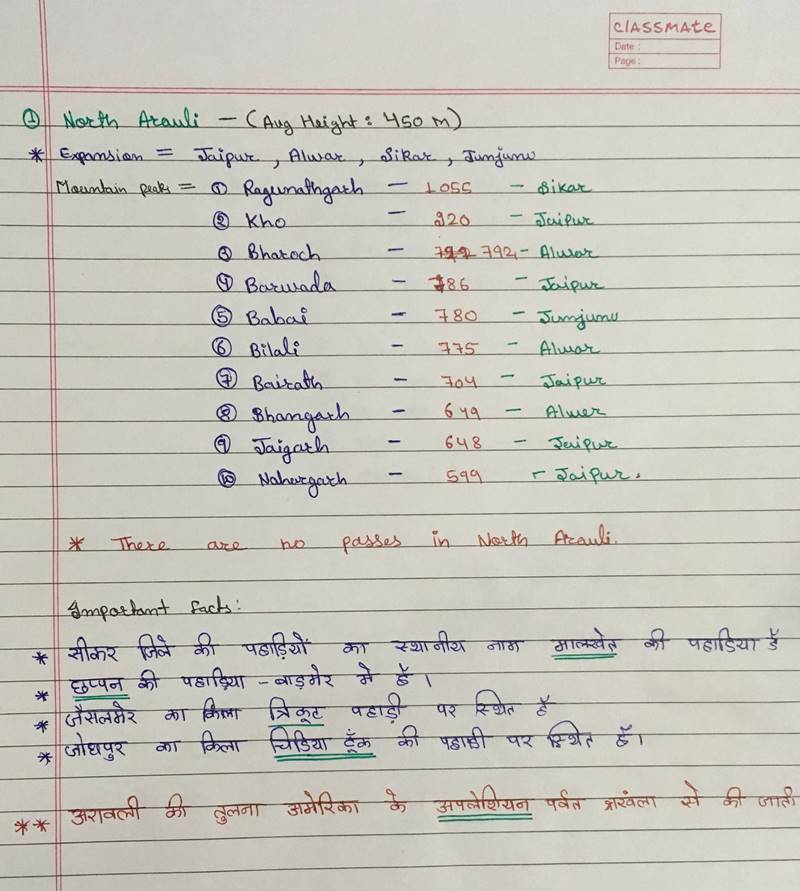 CLASSMATE
Date :
Page :
① North Aravli - (Avg Height : 450 M)
* Expansion = Jaipur, Alwar, Sikar, Junjunu
Mountain peaks = ① Ragunathgarh - 1055 - Sikar
② Kho - 920 - Jaipur
③ Bharoch - 792 - Alwar
④ Barwada - 786 - Jaipur
⑤ Babai - 780 - Junjunu
⑥ Bilali - 775 - Alwar
⑦ Bairath - 704 - Jaipur
⑧ Bhangarh - 649 - Alwer
⑨ Jaigarh - 648 - Jaipur
⑩ Nahargarh - 599 - Jaipur.
* There are no passes in North Aravli.
Important facts:
* सीकर जिले की पहाड़ियों का स्थानीय नाम मालखेत की पहाडिया है
* छप्पन की पहाड़िया - बाड़मेर मे है।
* जैसलमेर का किला त्रिकूट पहाड़ी पर स्थित है
* जोधपुर का किला चिडिया टूँक की पहाडी पर स्थित है।
** अरावली की तुलना अमेरिका के अपलेशियन पर्वत श्रखंला से की जाती